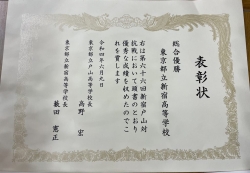 表彰状
総合優勝
東京都立新宿高等学校
右は第六十六回新宿戸山対
抗戦において頭書のとおり
優秀な成績を収めたのでこ
れを賞します
令和四年六月九日
東京都立戸山高等学校長
高野 宏
東京都立新宿高等学校長
藪田 憲正